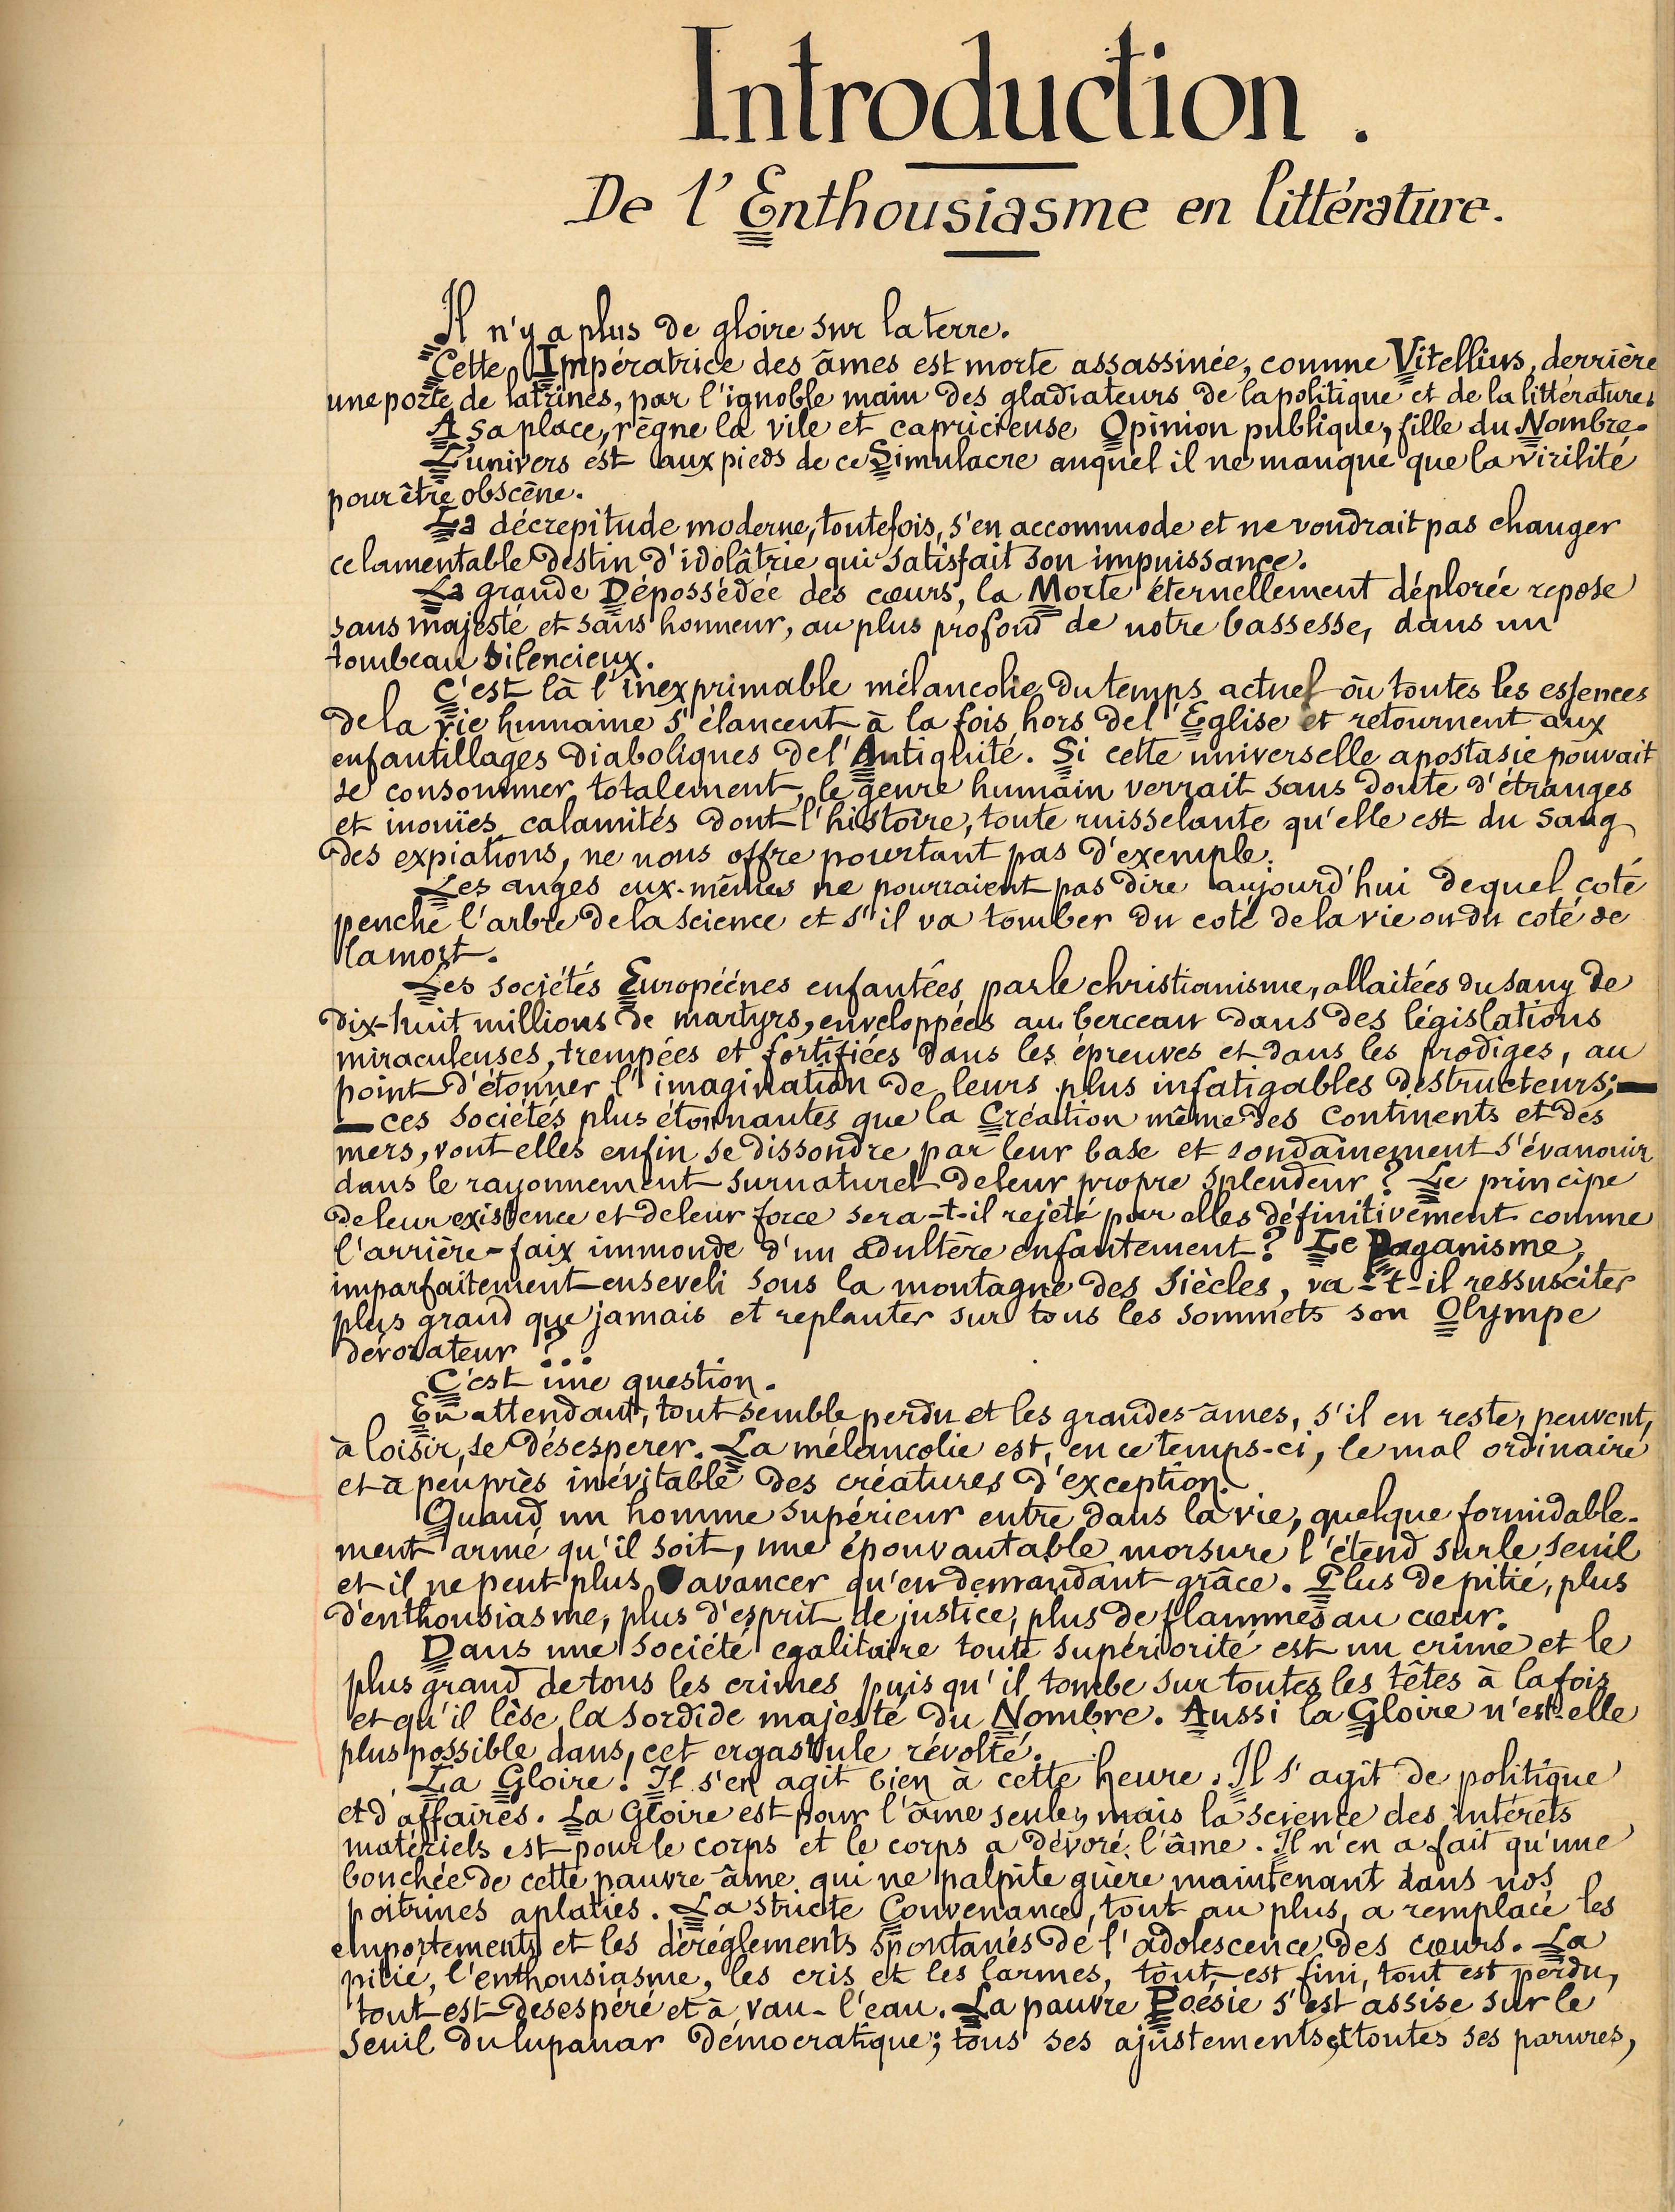 Introduction.
De l'Enthousiasme en littérature.
Il n'y a plus de gloire sur la terre.
Cette Impératrice des âmes est morte assassinée, comme Vitellius, derrière
une porte de latrines, par l'ignoble main des gladiateurs de la politique et de la littérature.
A sa place, règne la vile et capricieuse Opinion publique, fille du Nombre.
L'univers est aux pieds de ce Simulacre auquel il ne manque que la virilité
pour être obscène.
La décrepitude moderne, toutefois, s'en accommode et ne voudrait pas changer
ce lamentable destin d'idolâtrie qui satisfait son impuissance.
La grande Dépossédée des cœurs, la Morte éternellement déplorée repose
sans majesté et sans honneur, au plus profond de notre bassesse, dans un
tombeau silencieux.
C'est là l'inexprimable mélancolie du temps actuel où toutes les essences
de la vie humaine s'élancent à la fois hors de l'Eglise et retournent aux
enfantillages diaboliques de l'Antiquité. Si cette universelle apostasie pouvait
se consommer totalement, le genre humain verrait sans doute d'étranges
et inouïes calamités dont l'histoire, toute ruisselante qu'elle est du sang
des expiations, ne nous offre pourtant pas d'exemple.
Les anges eux-mêmes ne pourraient pas dire aujourd'hui de quel coté
penche l'arbre de la science et s'il va tomber du coté de la vie ou du coté de
la mort.
Les sociétés Européénes enfantées par le christianisme, allaitées du sang de
dix-huit millions de martyrs, enveloppées au berceau dans des législations
miraculeuses, trempées et fortifiées dans les épreuves et dans les prodiges, au
point d'étonner l'imagination de leurs plus infatigables destructeurs; —
— ces sociétés plus étonnantes que la Création même des continents et des
mers, vont elles enfin se dissoudre par leur base et soudainement s'évanouir
dans le rayonnement surnaturel de leur propre splendeur? Le principe
de leur existence et de leur force sera-t-il rejeté par elles définitivement comme
l'arrière-faix immonde d'un adultère enfantement? Le Paganisme,
imparfaitement enseveli sous la montagne des siècles, va-t-il ressusciter
plus grand que jamais et replanter sur tous les sommets son Olympe
dévorateur?...
C'est une question.
En attendant, tout semble perdu et les grandes âmes, s'il en reste, peuvent,
à loisir, se désesperer. La mélancolie est, en ce temps-ci, le mal ordinaire
et à peu près inévitable des créatures d'exception.
Quand un homme supérieur entre dans la vie, quelque formidable-
ment armé qu'il soit, une épouvantable morsure l'étend sur le seuil
et il ne peut plus avancer qu'en demandant grâce. Plus de pitié, plus
d'enthousiasme, plus d'esprit de justice, plus de flammes au cœur.
Dans une société egalitaire toute supériorité est un crime et le
plus grand de tous les crimes puis qu'il tombe sur toutes les têtes à la fois
et qu'il lèse la sordide majesté du Nombre. Aussi la Gloire n'est-elle
plus possible dans cet ergastule révolté.
La Gloire! Il s'en agit bien à cette heure. Il s'agit de politique
et d'affaires. La Gloire est pour l'âme seule, mais la science des intérêts
matériels est pour le corps et le corps a dévoré l'âme. Il n'en a fait qu'une
bouchée de cette pauvre âme qui ne palpite guère maintenant dans nos
poitrines aplaties. La stricte Convenance, tout au plus, a remplacé les
emportements et les déréglements spontanés de l'adolescence des cœurs. La
pitié, l'enthousiasme, les cris et les larmes, tout est fini, tout est perdu,
tout est desespéré et à vau-l'eau. La pauvre Poésie s'est assise sur le
seuil du lupanar démocratique; tous ses ajustements et toutes ses parures,